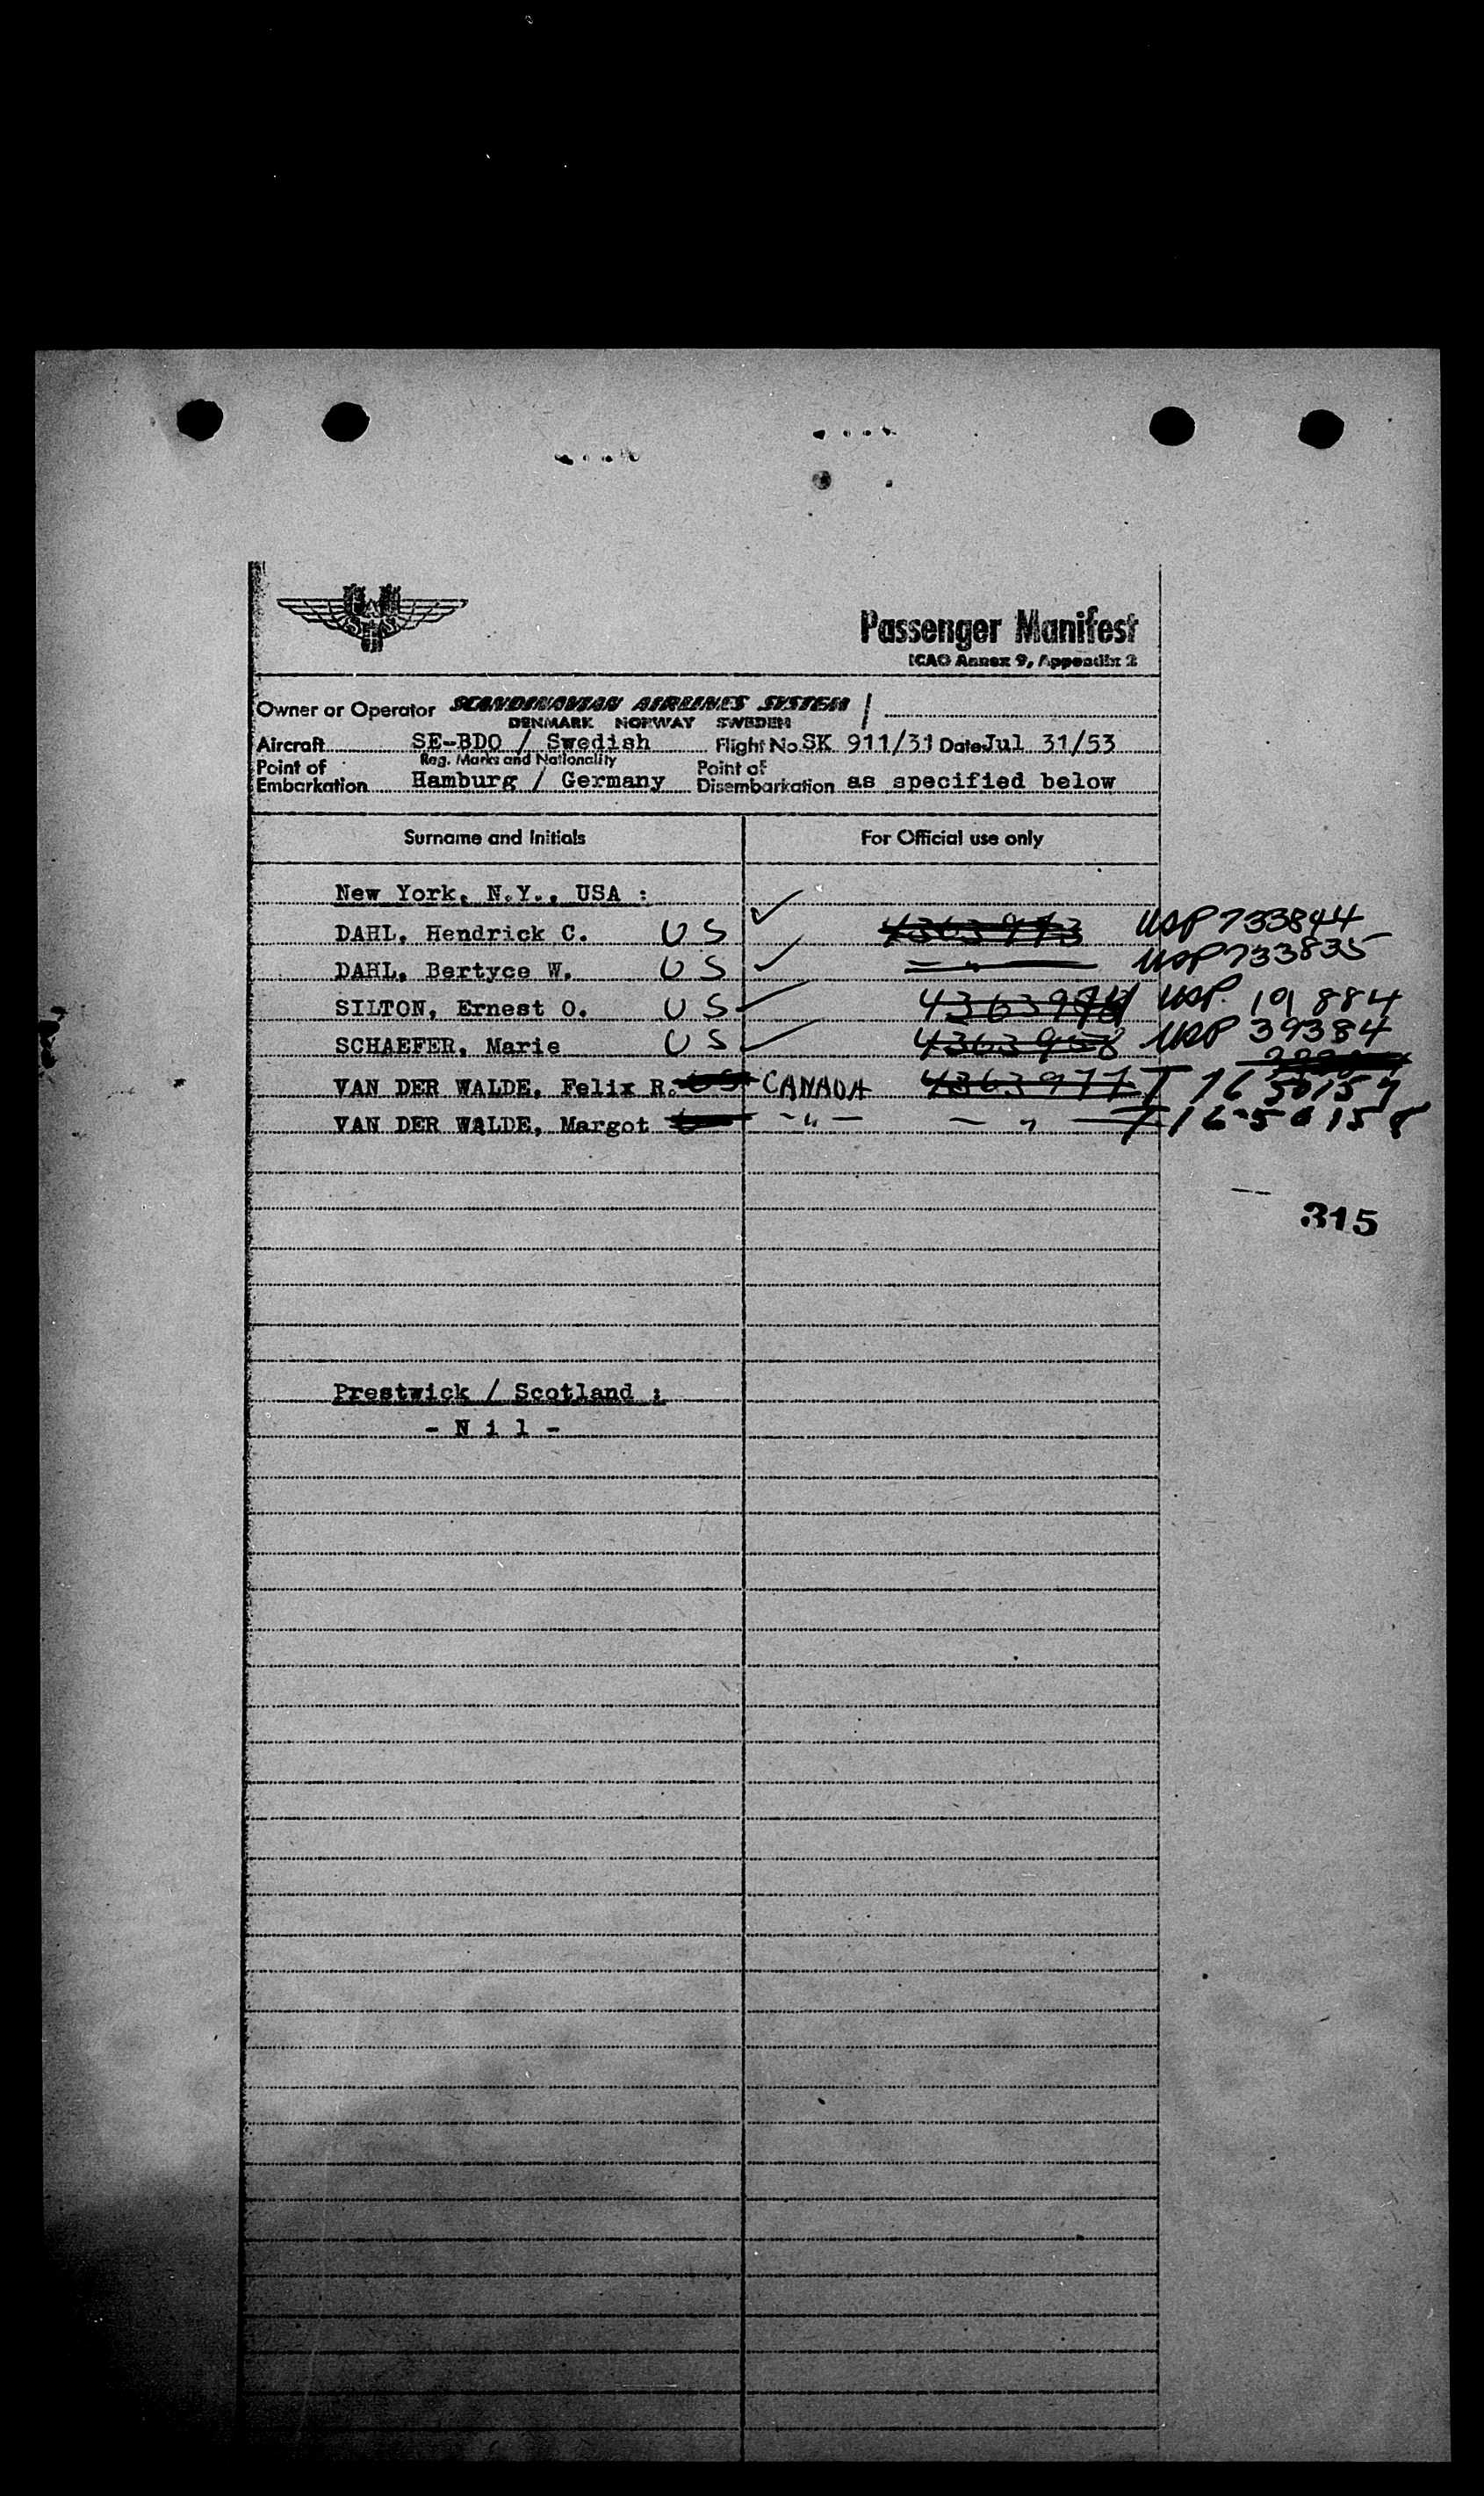 SAS
Passenger Manifest
ICAO Annex 9, Appendix 2
Owner or Operator SCANDINAVIAN AIRLINES SYSTEM /
DENMARK NORWAY SWEDEN
Aircraft SE-BDO / Swedish Flight No. SK 911/31 Date Jul 31/53
Reg. Marks and Nationality
Point of Embarkation Hamburg / Germany Point of Disembarkation as specified below
Surname and Initials For Official use only
New York, N.Y., USA :
DAHL, Hendrick C. US ✓ 4363973 USP 733844
DAHL, Bertyce W. US ✓ — " — USP 733835
SILTON, Ernest O. US ✓ USP. 191884
SCHAEFER, Marie US ✓ 4363958 USP 39384
VAN DER WALDE, Felix R. US CANADA 4363977 T 16 50157
VAN DER WALDE, Margot - " - — " — T 16-50158
315
Prestwick / Scotland :
- N i l -